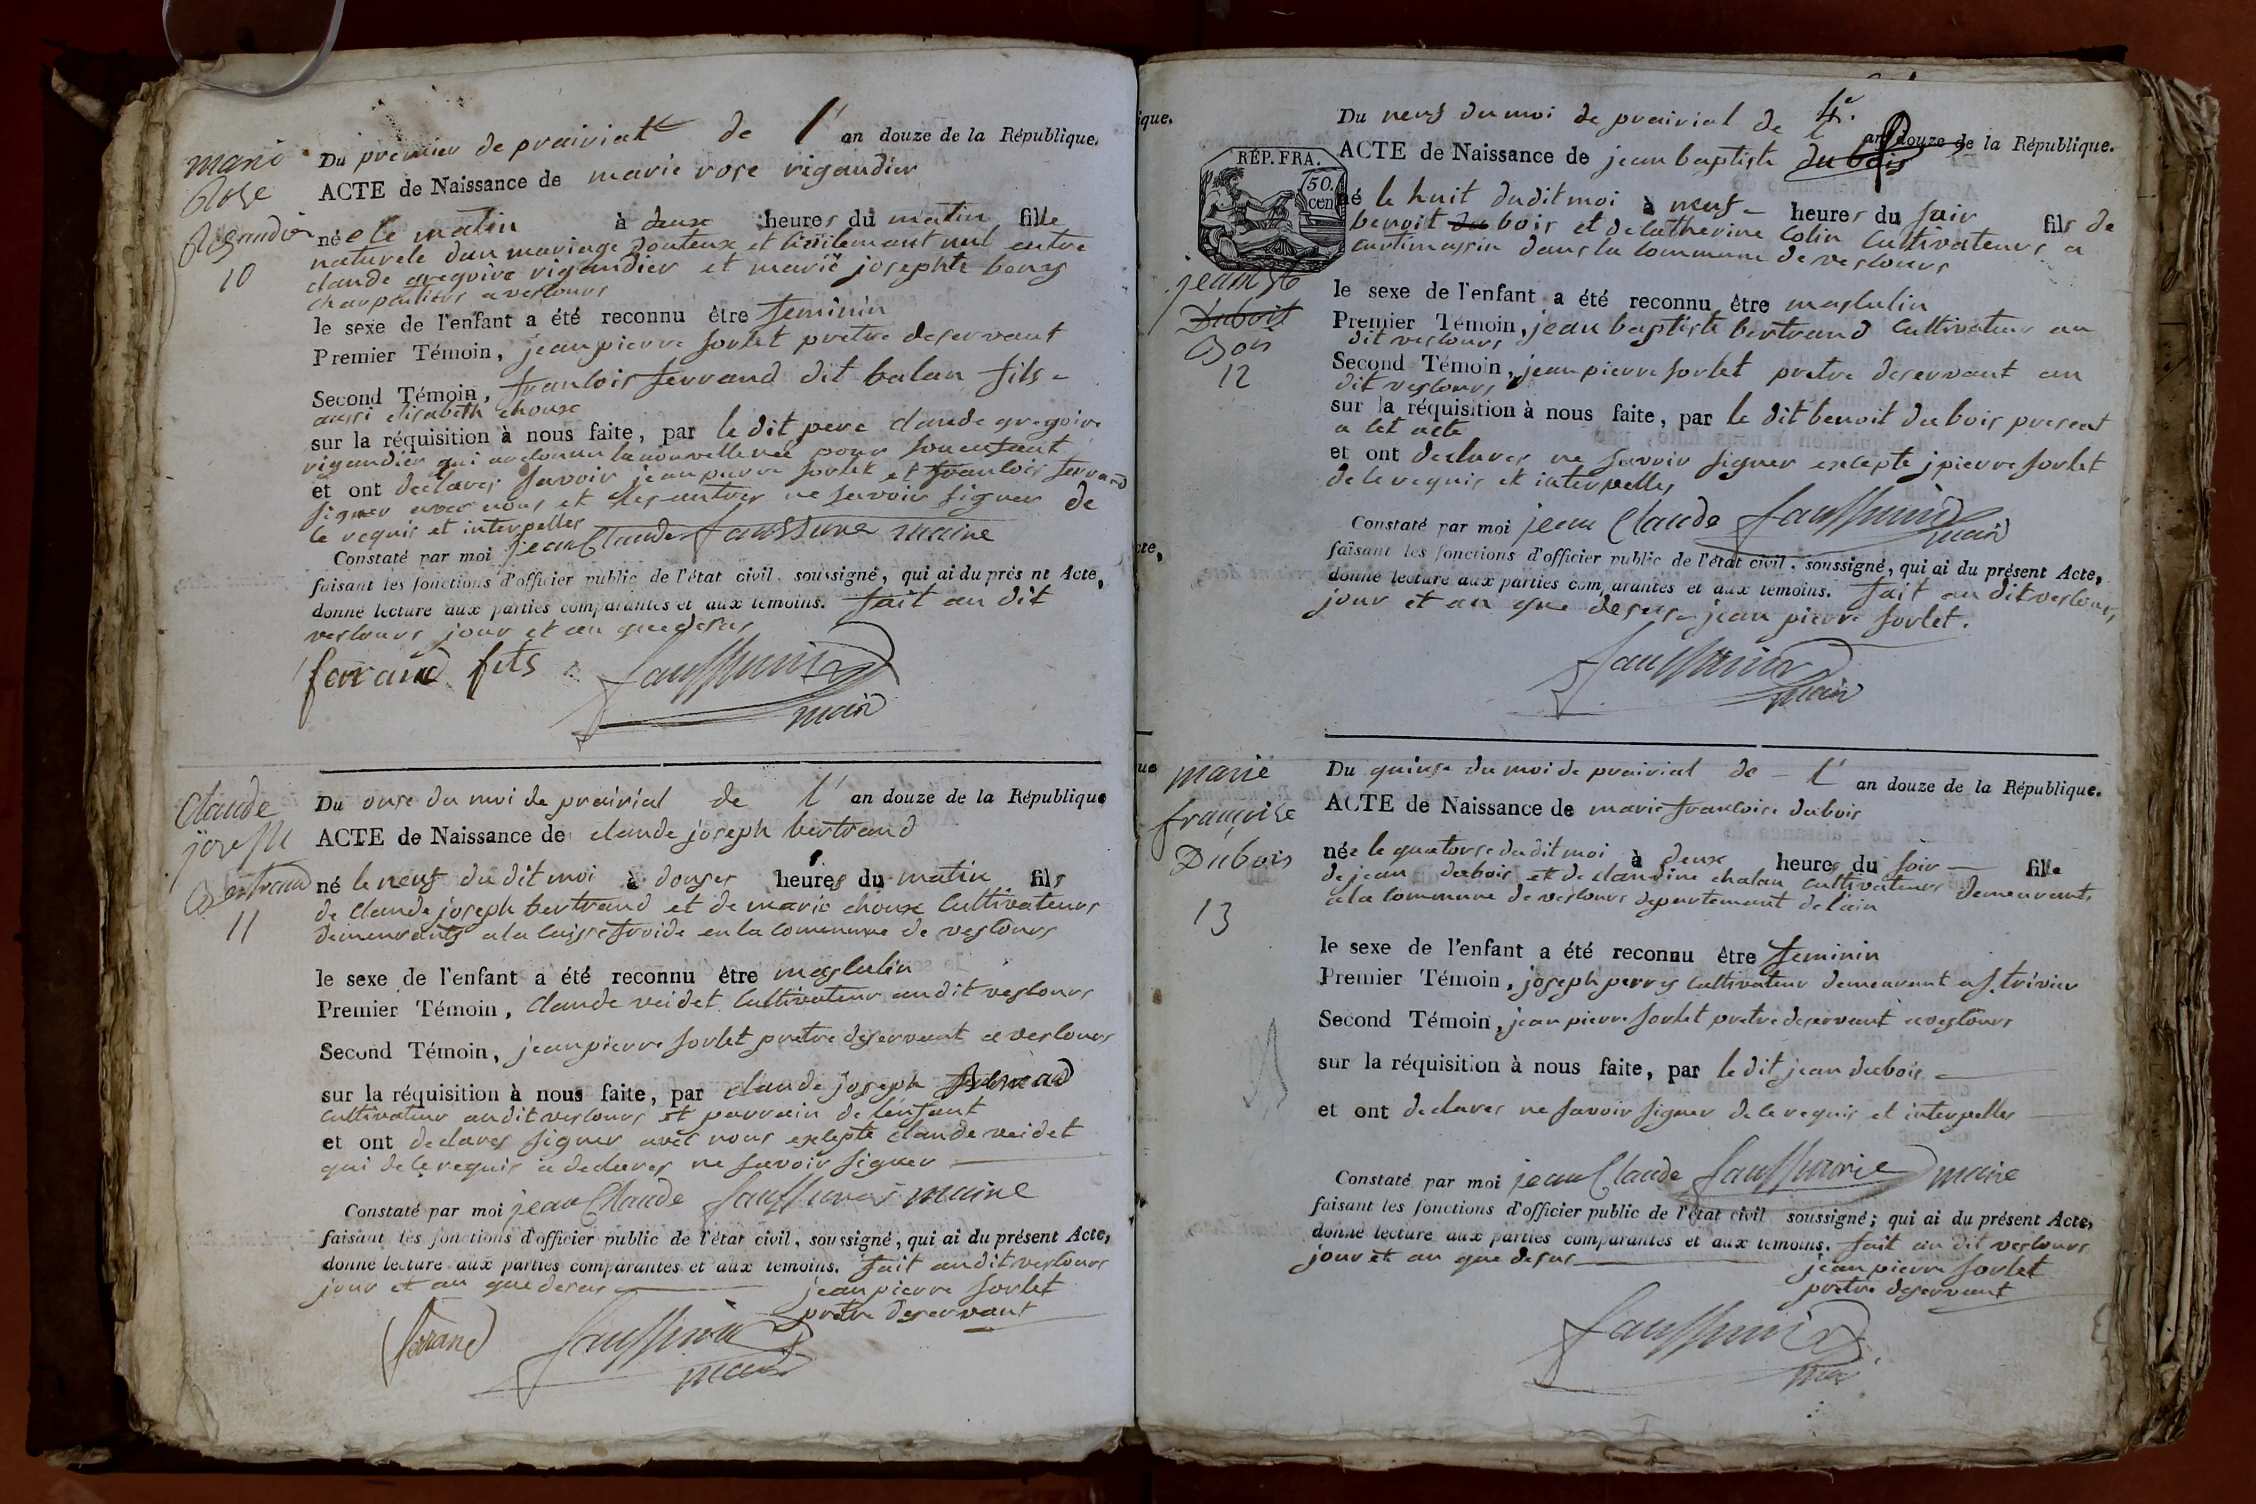 marie
Rose
Rigaudier
10
Du premier de prairial de l' an douze de la République.
ACTE de Naissance de marie rose rigaudier
née le matin à deux heures du matin fille
naturele dun mariage douteux et civilemant nul entre
claude gregoire rigaudier et marie josephte beny
charpentiers a vescours
le sexe de l'enfant a été reconnu être feminin
Premier Témoin, jean pierre sorlet pretre deservant
Second Témoin, francois ferrand dit balan fils
aussi elisabeth choux
sur la réquisition à nous faite, par le dit pere claude gregoire
rigaudier qui a reconnu la nouvelle née pour son enfant
et ont declarer savoir jean pierre sorlet et francois ferrand
signer avec nous et les autres ne savoir signer de
ce requis et interpeller
Constaté par moi jean Claude saussurie maire
faisant les fonctions d'officier public de l'état civil, soussigné, qui ai du présent Acte,
donné lecture aux parties comparantes et aux témoins. fait au dit
vescours jour et an que desus
ferrand fils
maire
Claude
joseph
Bertrand
11
Du onse du moi de prairial de l' an douze de la République
ACTE de Naissance de claude joseph bertrand
né le neuf du dit moi à douser heures du matin fils
de claude joseph bertrand et de marie choux Cultivateurs
demeurants a la caisse froide en la commune de vescours
le sexe de l'enfant a été reconnu être masculin
Premier Témoin, Claude veidet Cultivateur au dit vescours
Second Témoin, jean pierre sorlet pretre deservant a vescours
sur la réquisition à nous faite, par claude joseph
cultivateur au dit vescours et parrain de lenfant
et ont declarer signer avec nous excepte claude veidet
qui de ce requis a declarer ne savoir signer
Constaté par moi jean Claude maire
faisant les fonctions d'officier public de l'état civil, soussigné, qui ai du présent Acte,
donné lecture aux parties comparantes et aux témoins. fait au dit vescours
jour et an que desus
jean pierre sorlet
pretre deservant
maire
ique.
cte,
ue
RÉP. FRA.
50.
cen
jean Bte
Duboit
Bois
12
Du neuf du moi de prairial de l' an douze de la République.
ACTE de Naissance de jean baptiste du bois
né le huit du dit moi à neuf heures du soir fils de
benoit du bois et de catherine Colin Cultivateurs a
cartimassin dans la commune de vescours
le sexe de l'enfant a été reconnu être masculin
Premier Témoin, jean baptiste bertrand Cultivateur au
dit vescours
Second Témoin, jean pierre sorlet pretre deservant au
dit vescours
sur la réquisition à nous faite, par le dit benoit du bois present
a cet acte
et ont declarer ne savoir signer excepte j pierre sorlet
de ce requis et interpeller
Constaté par moi jean Claude maire
faisant les fonctions d'officier public de l'état civil, soussigné, qui ai du présent Acte,
donné lecture aux parties comparantes et aux témoins. fait au dit vescours,
jour et an que desus jean pierre sorlet.
maire
marie
françoise
Dubois
13
Du quinse du moi de prairial de l' an douze de la République.
ACTE de Naissance de marie francoise dubois
née le quatorse du dit moi à deux heures du soir fille
de jean dubois et de claudine chalan cultivateurs demeurants
a la commune de vescours departemant de lain
le sexe de l'enfant a été reconnu être feminin
Premier Témoin, joseph perry cultivateur demeurant a st. trivier
Second Témoin, jean pierre sorlet pretre deservant a vescours
sur la réquisition à nous faite, par le dit jean dubois
et ont declarer ne savoir signer de ce requis et interpeller
Constaté par moi jean Claude saussurie maire
faisant les fonctions d'officier public de l'état civil soussigné; qui ai du présent Acte,
donné lecture aux parties comparantes et aux témoins. fait au dit vescours
jour et an que desus
jean pierre sorlet
pretre deservant